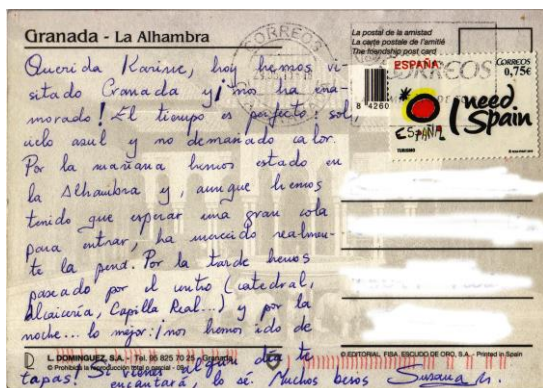 Granada - La Alhambra
La postal de la amistad
La carte postale de l'amitié
The friendship post card
CORREOS
ESPAÑA
CORREOS
0,75€
I need
Spain
ESPAÑA
TURISMO
8 4260
Querida Karine, hoy hemos vi-
sitado Granada y ¡nos ha ena-
morado! El tiempo es perfecto: sol,
cielo azul y no demasiado calor.
Por la mañana hemos estado en
la Alhambra y, aunque hemos
tenido que esperar una gran cola
para entrar, ha merecido realmen-
te la pena. Por la tarde hemos
paseado por el centro (catedral,
Alcaicería, Capilla Real...) y por la
noche... lo mejor: ¡nos hemos ido de
tapas! Si vienes algún día te
encantará, lo sé. Muchos besos Susana M.
L. DOMINGUEZ, S.A. - Tel. 95 825 70 25 - Granada
© Prohibida la reproducción total o parcial
© EDITORIAL FISA ESCUDO DE ORO, S.A. - Printed in Spain